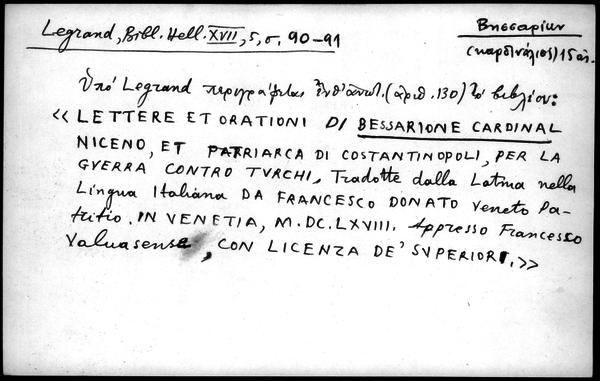 Legrand, Bibl. Hell. XVII, 5, σ. 90-91
Βησσαρίων
(καρδινάλιος) 15 αἰ.
Ὑπό Legrand περιγράφεται (ἀριθ. 130) τό βιβλίον:
« LETTERE ET ORATIONI DI BESSARIONE CARDINAL
NICENO, ET PATRIARCA DI COSTANTINOPOLI, PER LA
GVERRA CONTRO TVRCHI, Tradotte dalla Latina nella
Lingua Italiana DA FRANCESCO DONATO Veneto Pa-
tritio. IN VENETIA, M.DC.LXVIII. Appresso Francesco
Valuasense, CON LICENZA DE' SVPERIORI.»